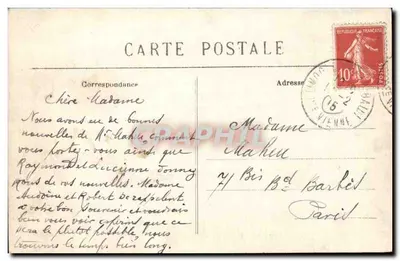 CARTE POSTALE
Correspondance
Adresse
REPUBLIQUE FRANÇAISE
10
POSTES
Chère Madame
Nous avons eu de bonnes
nouvelles de Mr Mahieu comment
vous portez-vous ainsi que
Raymond et Lucienne donnez
nous de vos nouvelles. Madame
et Robert se rappelent
a votre bon souvenir et voudrais
bien vous voir esperons que ce
sera le plutot possible, nous
trouvons le temps bien long.
Madame
Mahieu
7 Bis Bd Barbès
Paris